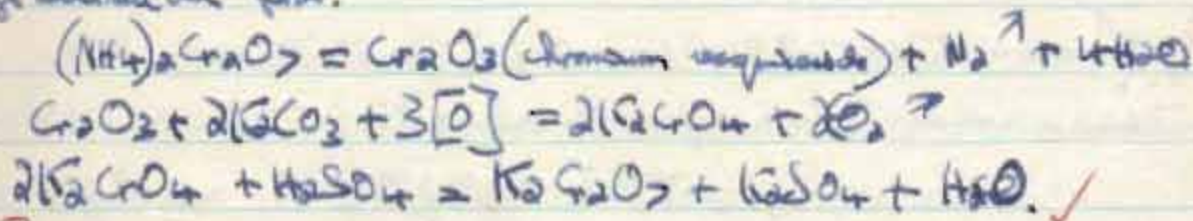 (NH4)2Cr2O7 = Cr2O3 (chromium sesquioxide) + N2 ↗ + 4H2O
Cr2O3 + 2K2CO3 + 3[O] = 2K2CrO4 + 2CO2 ↗
2K2CrO4 + H2SO4 = K2Cr2O7 + K2SO4 + H2O. ✓